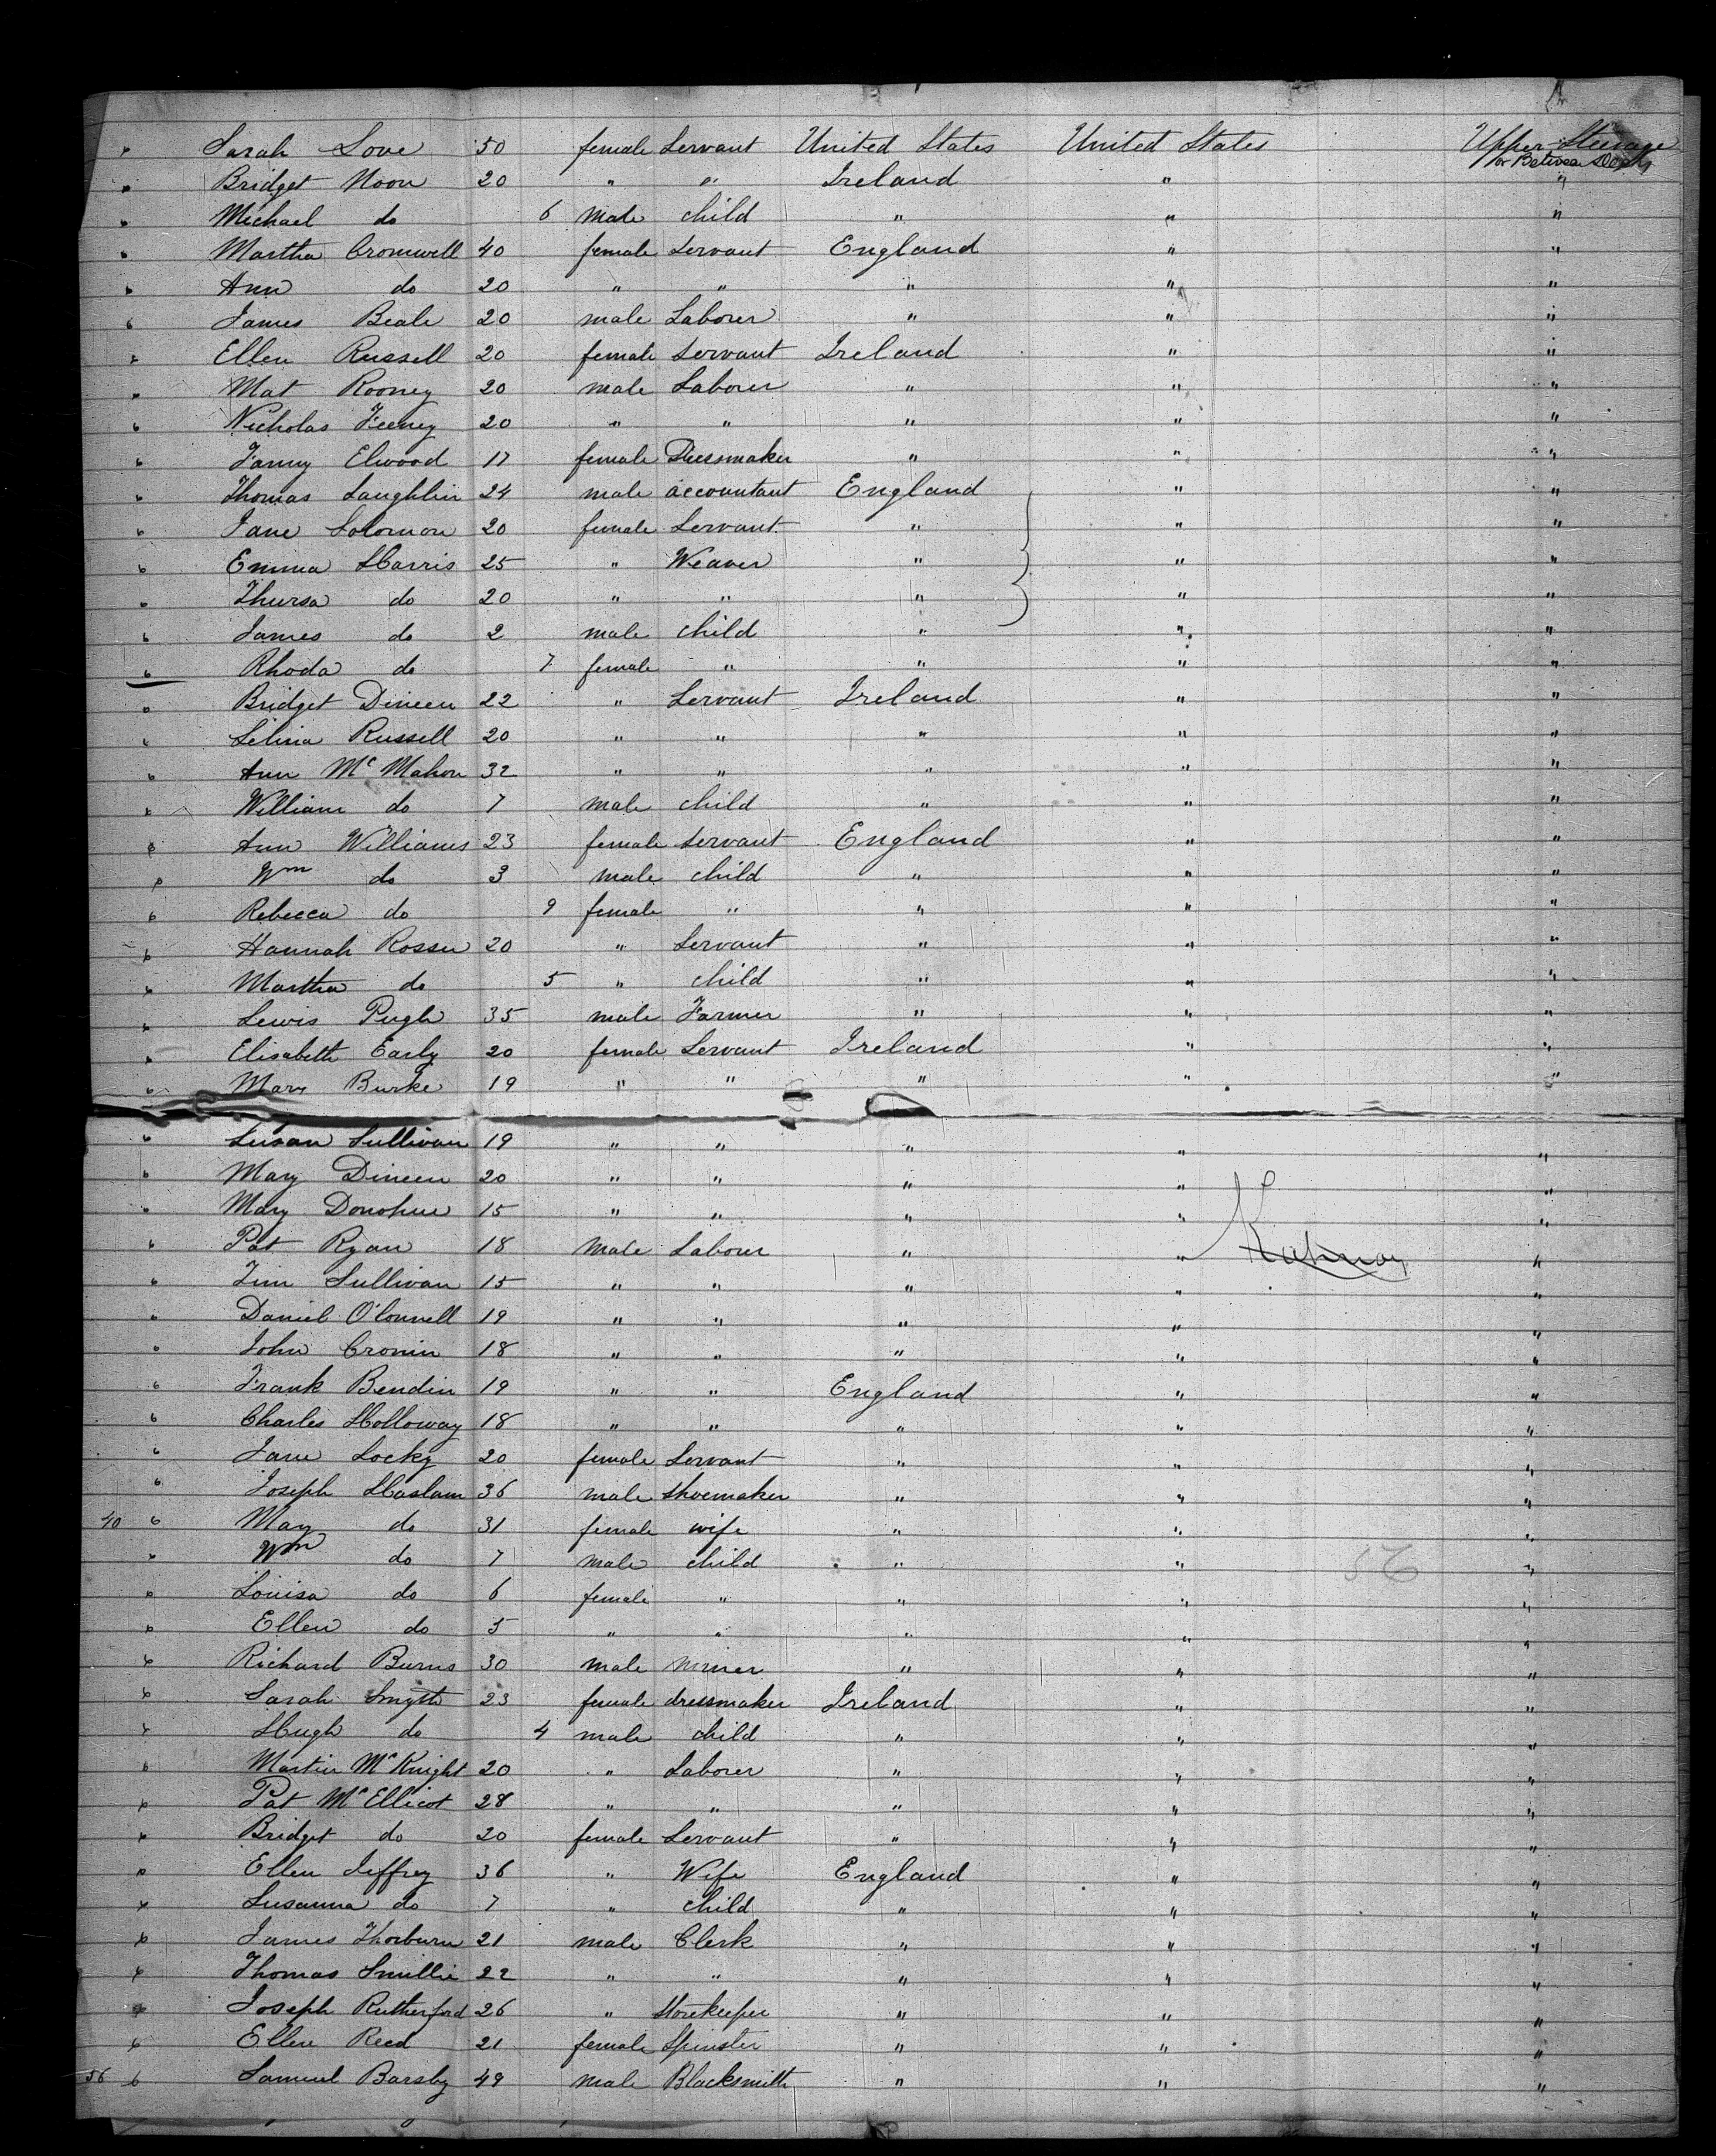 Sarah Love 50 female Servant United States United States Upper Steerage
or Between Decks
Bridget Noon 20 " " Ireland " "
Michael do 6 male child " " "
Martha Cromwell 40 female Servant England " "
Ann do 20 " " " " "
James Beale 20 male Laborer " " "
Ellen Russell 20 female Servant Ireland " "
Mat Rooney 20 male Laborer " " "
Nicholas Feeney 20 " " " " "
Fanny Elwood 17 female Dressmaker " " "
Thomas Laughlin 24 male accountant England " "
Jane Solomon 20 female Servant " " "
Emma Harris 25 " Weaver " " "
Thursa do 20 " " " " "
James do 2 male child " " "
Rhoda do 7 female " " " "
Bridget Dineen 22 " Servant Ireland " "
Selina Russell 20 " " " " "
Ann McMahon 32 " " " " "
William do 7 male child " " "
Ann Williams 23 female Servant England " "
Wm do 3 male child " " "
Rebecca do 9 female " " " "
Hannah Rosser 20 " Servant " " "
Martha do 5 " child " " "
Lewis Pugh 35 male Farmer " " "
Elisabeth Early 20 female Servant Ireland " "
Mary Burke 19 " " " " "
Susan Sullivan 19 " " " " "
Mary Dineen 20 " " " " "
Mary Donohue 15 " " " " "
Pat Ryan 18 male Laborer " " "
Tim Sullivan 15 " " " " "
Daniel O'Connell 19 " " " " "
John Cronin 18 " " " " "
Frank Bendin 19 " " England " "
Charles Holloway 18 " " " " "
Jane Locky 20 female Servant " " "
Joseph Haslam 36 male Shoemaker " " "
40 Mary do 31 female wife " " "
Wm do 7 male child " " "
Louisa do 6 female " " " "
Ellen do 5 " " " " "
Richard Burns 30 male miner " " "
Sarah Smyth 23 female dressmaker Ireland " "
Hugh do 4 male child " " "
Martin McKnight 20 " Laborer " " "
Pat McEllicot 28 " " " " "
Bridget do 20 female Servant " " "
Ellen Jeffrey 36 " Wife England " "
Susanna do 7 " child " " "
James Thorburn 21 male Clerk " " "
Thomas Smillie 22 " " " " "
Joseph Rutherford 26 " Storekeeper " " "
Ellen Reed 21 female Spinster " " "
56 Samuel Barsby 49 male Blacksmith " " "